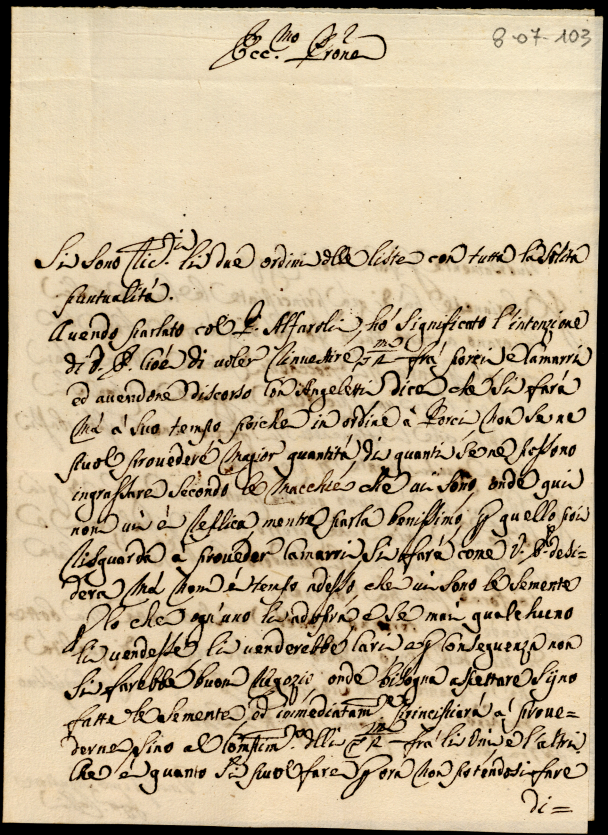 8-07-103
Ecc.mo Prone
Si sono lic.ti li due ordini delle liste con tutta la solita
puntualità.
Avendo parlato col P. Alfaroli, hò significato l'intenzione
di V. P. cioè di voler rinvestire frà porci e lamarri
ed avendone discorso con Angeletti dice che si farà
mà à suo tempo poiche in ordine à Porci non se ne
puol provedere major quantità di quanti se ne possono
ingrassare secondo le Macchie che vi sono, onde qui
non vi è replica mentre parla benissimo, p quello poi
risguarda à proveder lamarri si farà come V. P. desi=
dera mà non è tempo adesso, che vi sono le semente
p lo che ogn'uno li adopra e se mai qualche uno
li vendesse li venderebbe cari e p conseguenza non
si farebbe buon negozio onde bisogna aspettare sino
fatte le semente ed immediatam.te principiarà à prove=
derne sino al compim.to delli frà li uni e l'altri
che è quanto si puol fare p ora non potendosi fare
di=